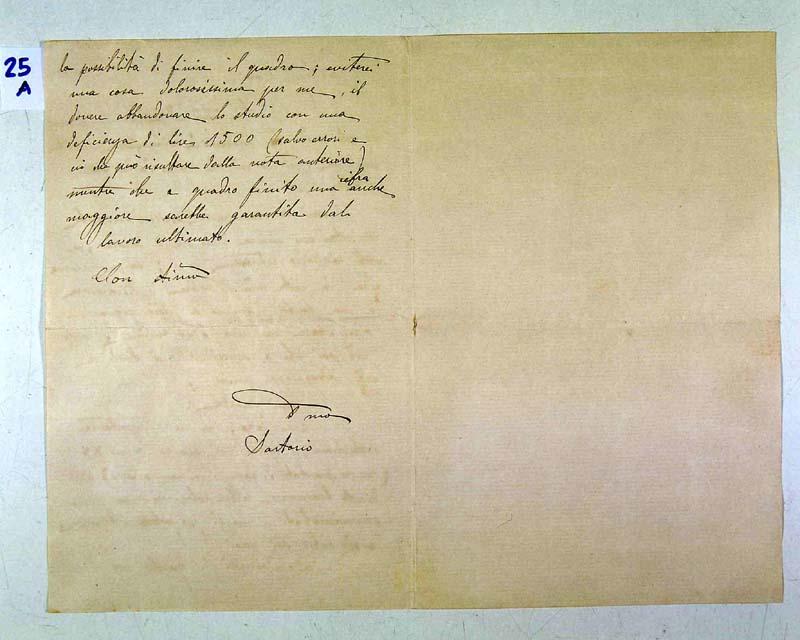 25
A
la possibilità di finire il quadro; eviterei
una cosa dolorosissima per me, il
dovere abbandonare lo studio con una
deficienza di lire 1500 (salvo errori e
ciò che può risultare dalla nota anteriore)
mentre che a quadro finito una cifra anche
maggiore sarebbe garantita dal
lavoro ultimato.
Con stima
Sartorio